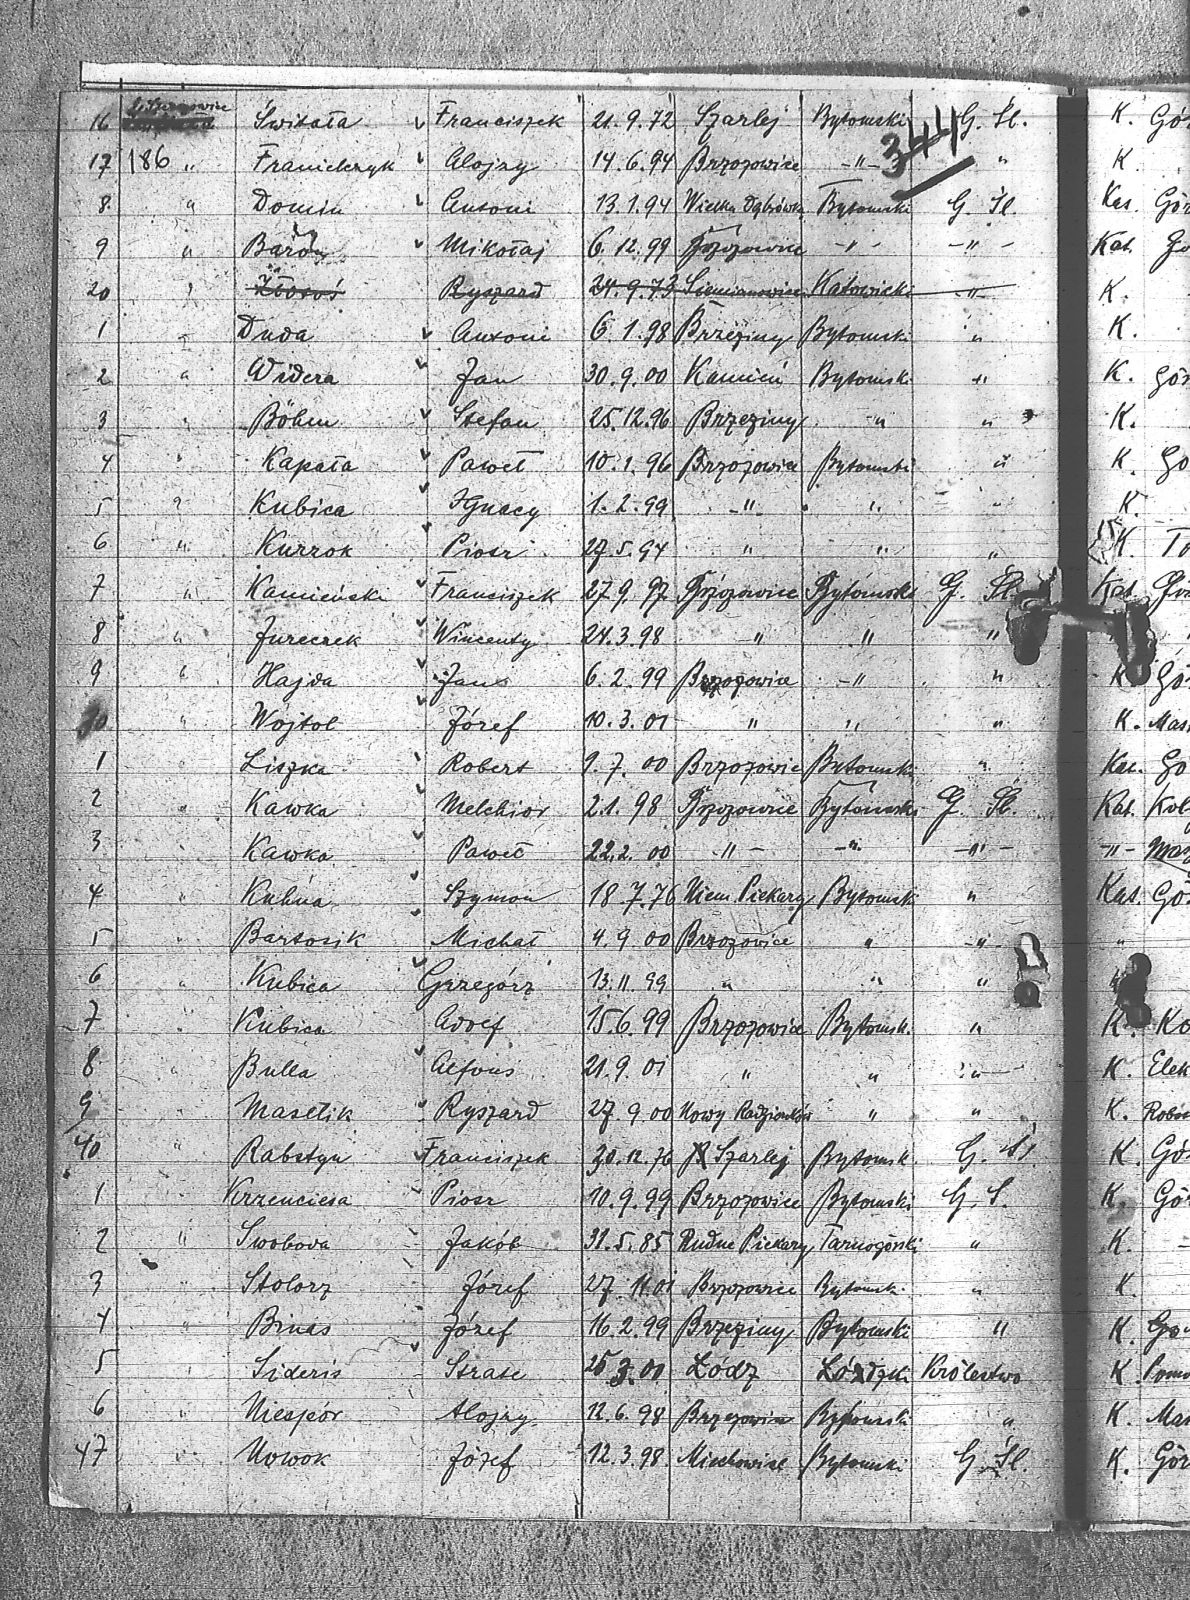 16 Świtała Franciszek 21.9.72 Szarlej Bytomski G. Śl. K. Gór
341
17 186 " Franiczyk Alojzy 14.6.94 Brzozowice -"- " K
8 " Domin Antoni 13.1.94 Wielka Dąbrówka Bytomski G. Śl. Kat. Gór
9 " Baron Mikołaj 6.12.99 Brzozowice -"- -"- Kat. Go
20 Ryszard 24.9.73 Siemianowice Katowicki -"- K.
1 " Duda Antoni 6.1.98 Brzeziny Bytomski " K.
2 " Widera Jan 30.9.00 Kamień Bytomski " K. Gór
3 " Böhm Stefan 25.12.96 Brzeziny " " K.
4 " Kapała Paweł 10.1.96 Brzozowice Bytomski " K. Go
5 " Kubica Ignacy 1.2.99 -"- " " K.
6 " Kurzok Piotr 27.5.94 " " " K. To
7 " Kamieńska Franciszek 27.9.97 Brzozowice Bytomski G. Śl. Kat. Gó
8 " Jureczek Wincenty 24.3.98 " " "
9 " Hajda Jan 6.2.99 Brzozowice -"- " K Gó
30 " Wojtol Józef 10.3.01 " " " K. Mas
1 Liszka Robert 9.7.00 Brzozowice Bytomski " Kat. Go
2 " Kawka Melchior 2.1.98 Brzozowice Bytomski G. Śl. Kat. Kol
3 " Kawka Paweł 22.2.00 -"- -"- -"- -"- Mas
4 " Kuhna Szymon 18.7.76 Niem Piekary Bytomski " Kat. Gó
5 " Bartosik Michał 4.9.00 Brzozowice " -"- "
6 " Kubica Grzegórz 13.11.99 " " "
7 " Kubica Adolf 15.6.99 Brzozowice Bytomsk. " K. Ko
8 " Bulla Alfons 21.9.01 " " " K. Elek
9 " Maselik Ryszard 27.9.00 Nowy Radzionków " " K. Robo
40 " Rabstyn Franciszek 30.12.76 Szarlej Bytomsk. G. Śl K. Gór
1 Krzenciesa Piotr 10.9.99 Brzozowice Bytomski G. S. K. Gór
2 " Swoboda Jakób 31.5.85 Rudne Piekary Tarnogórski " K. -
3 " Stolorz Józef 27.11.01 Brzozowice Bytomsk. " K.
4 " Binas Józef 16.2.99 Brzeziny Bytomski " K. Gór
5 " Sideris Strate 25.3.00 Łódz Łódzki Królestwo K. Pomo
6 " Niespór Alojzy 12.6.98 Brzezowice Bytomski " K. Mas
47 " Nowok Józef 12.3.98 Miechowice Bytomski G. Śl. K. Gór